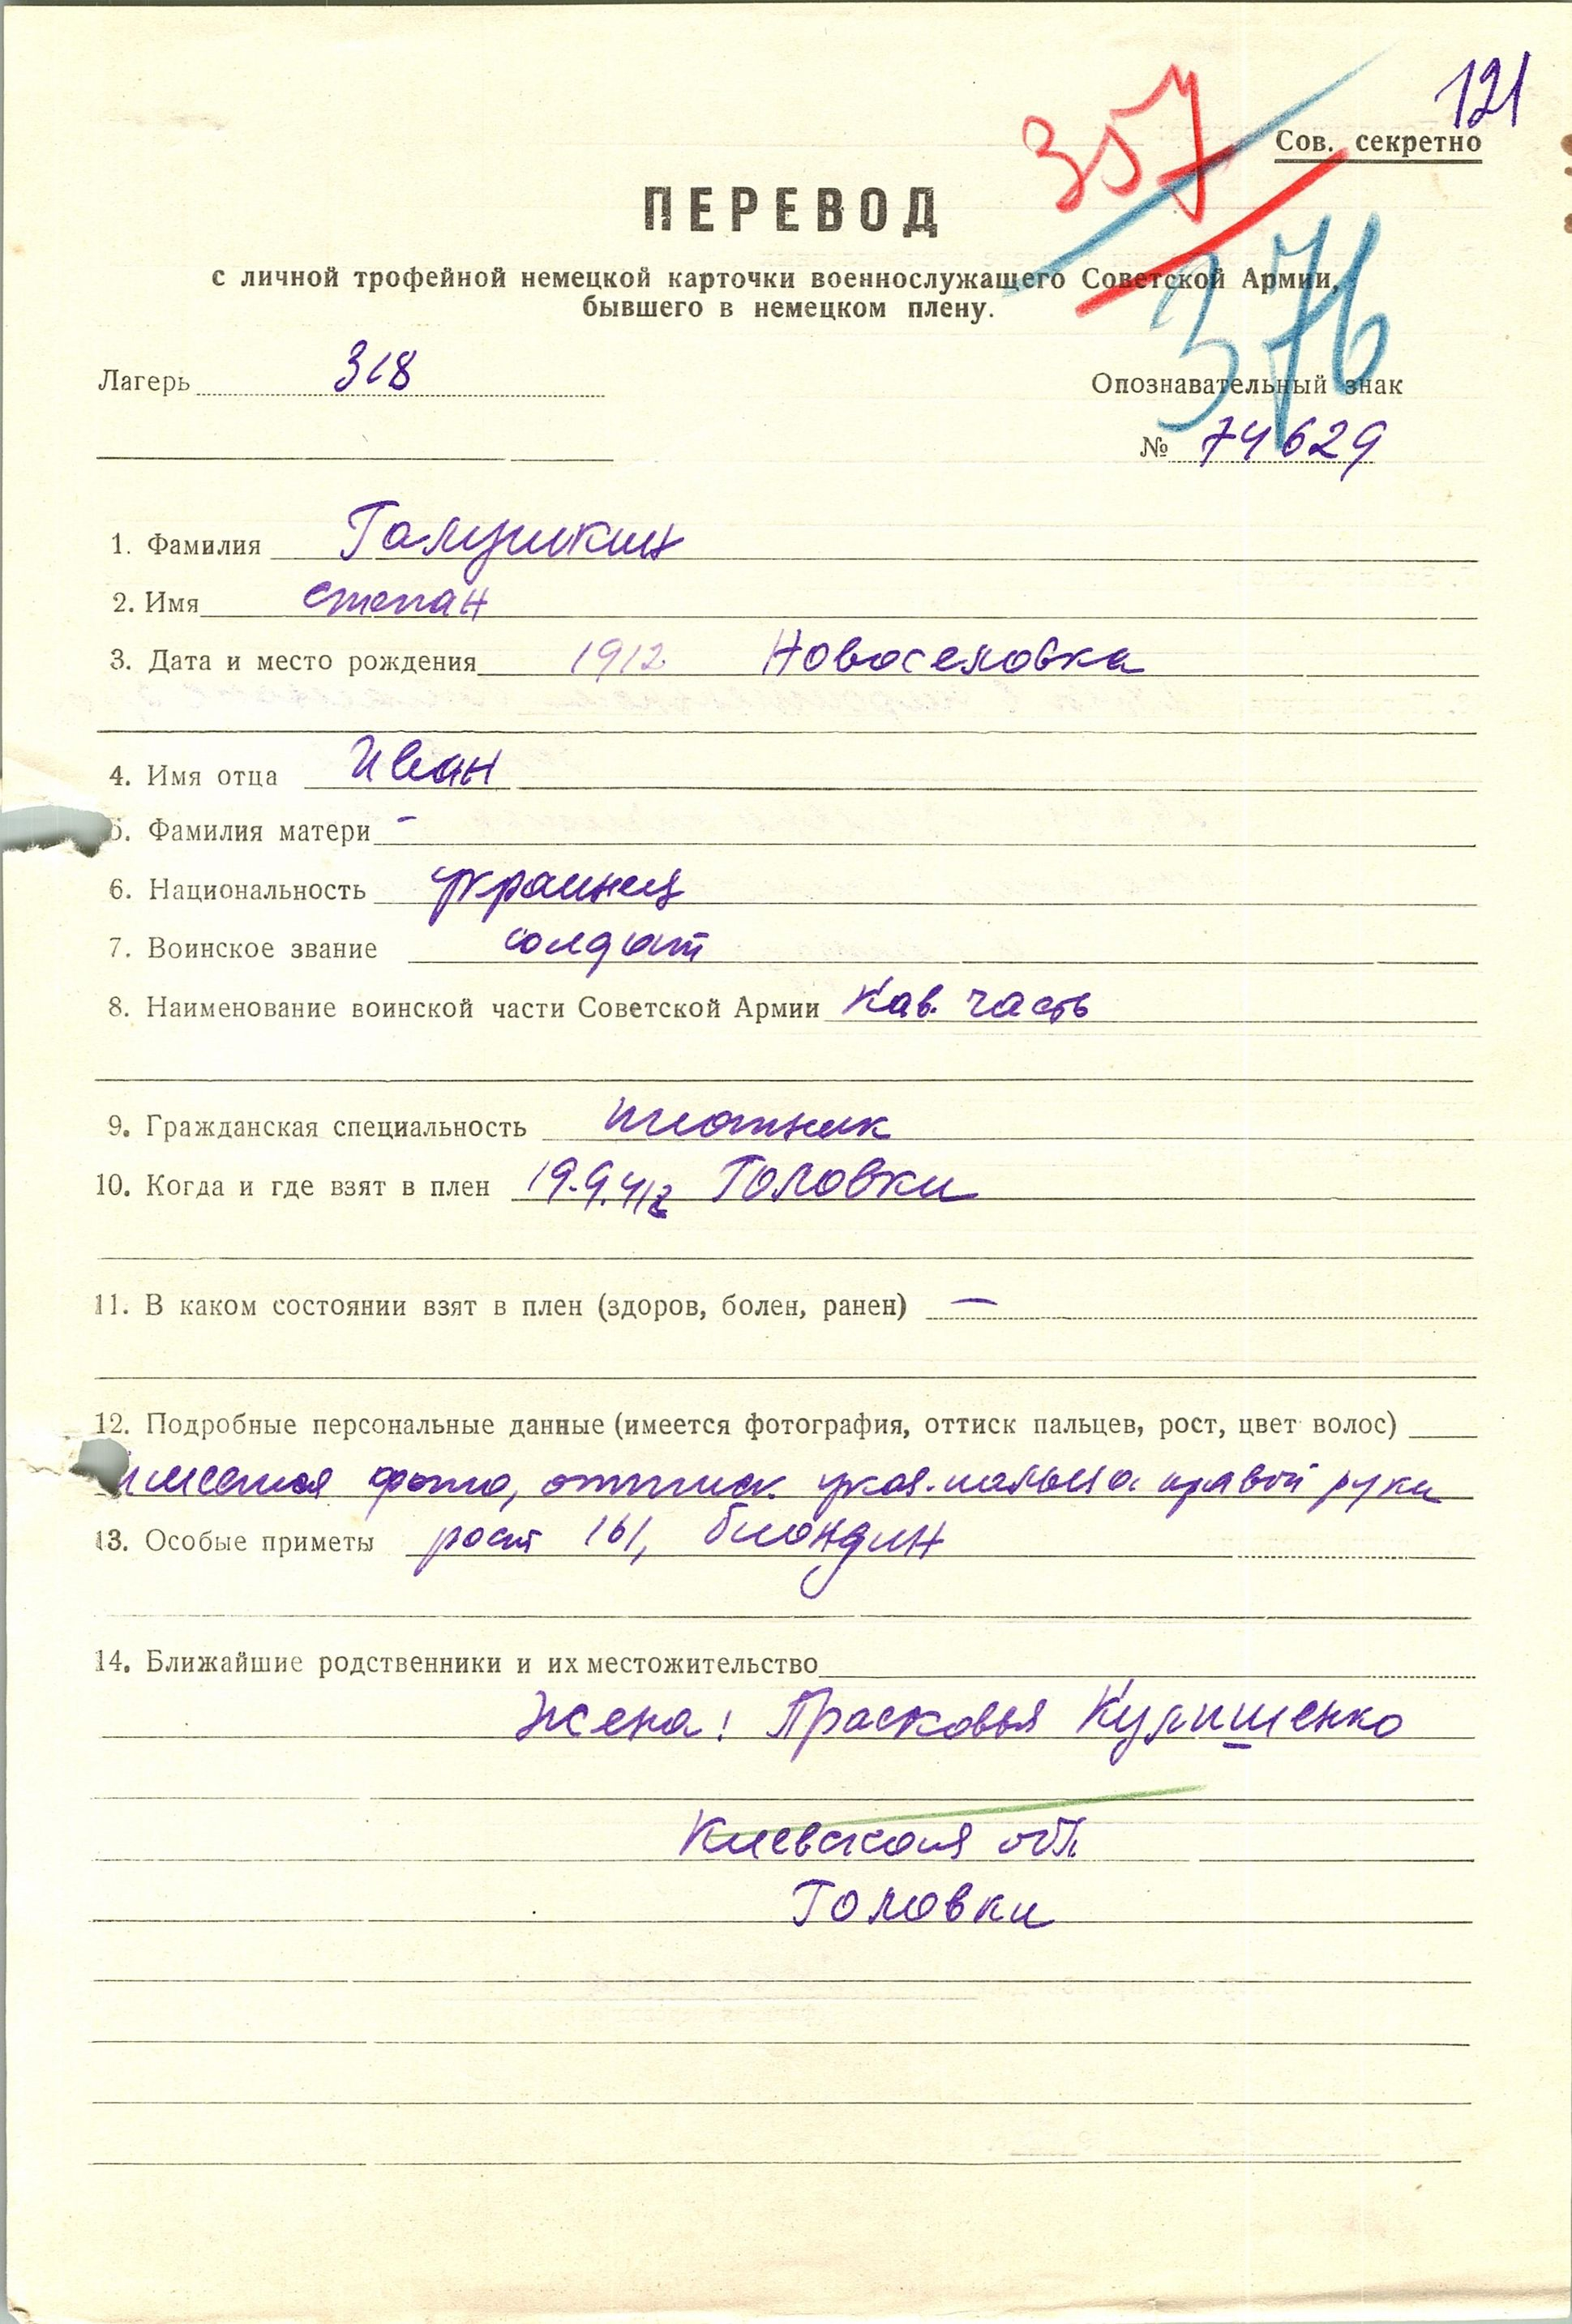 121
357
Сов. секретно
ПЕРЕВОД
с личной трофейной немецкой карточки военнослужащего Советской Армии,
бывшего в немецком плену.
376
Лагерь 318
Опознавательный знак
№ 74629
1. Фамилия Галушкин
2. Имя Степан
3. Дата и место рождения 1912 Новоселовка
4. Имя отца Иван
5. Фамилия матери -
6. Национальность украинец
7. Воинское звание солдат
8. Наименование воинской части Советской Армии Кав. часть
9. Гражданская специальность плотник
10. Когда и где взят в плен 19.9.42 Головки
11. В каком состоянии взят в плен (здоров, болен, ранен) —
12. Подробные персональные данные (имеется фотография, оттиск пальцев, рост, цвет волос)
имеется фото, оттиск указ. пальца правой руки
13. Особые приметы рост 161, блондин
14. Ближайшие родственники и их местожительство
Жена: Прасковья Кулишенко
Киевская обл.
Головки